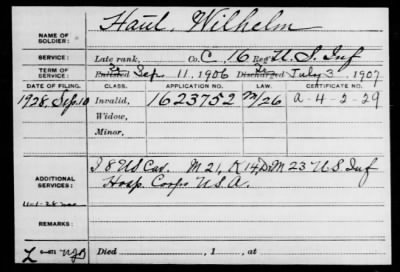 NAME OF SOLDIER: Haut, Wilhelm
SERVICE: Late rank, Co. C, 16 Reg't U.S. Inf
TERM OF SERVICE: Enlisted Sep 11, 1906 Discharged July 3, 1907
DATE OF FILING. CLASS. APPLICATION NO. LAW. CERTIFICATE NO.
1928, Sep. 10 Invalid, 1623752 M/26 a-4-2-29
Widow,
Minor,
ADDITIONAL SERVICES: I 8 US Cav. M 21, K 14, D, M 23 U.S. Inf
Hosp. Corps U.S.A.
REMARKS:
Died , 1 , at